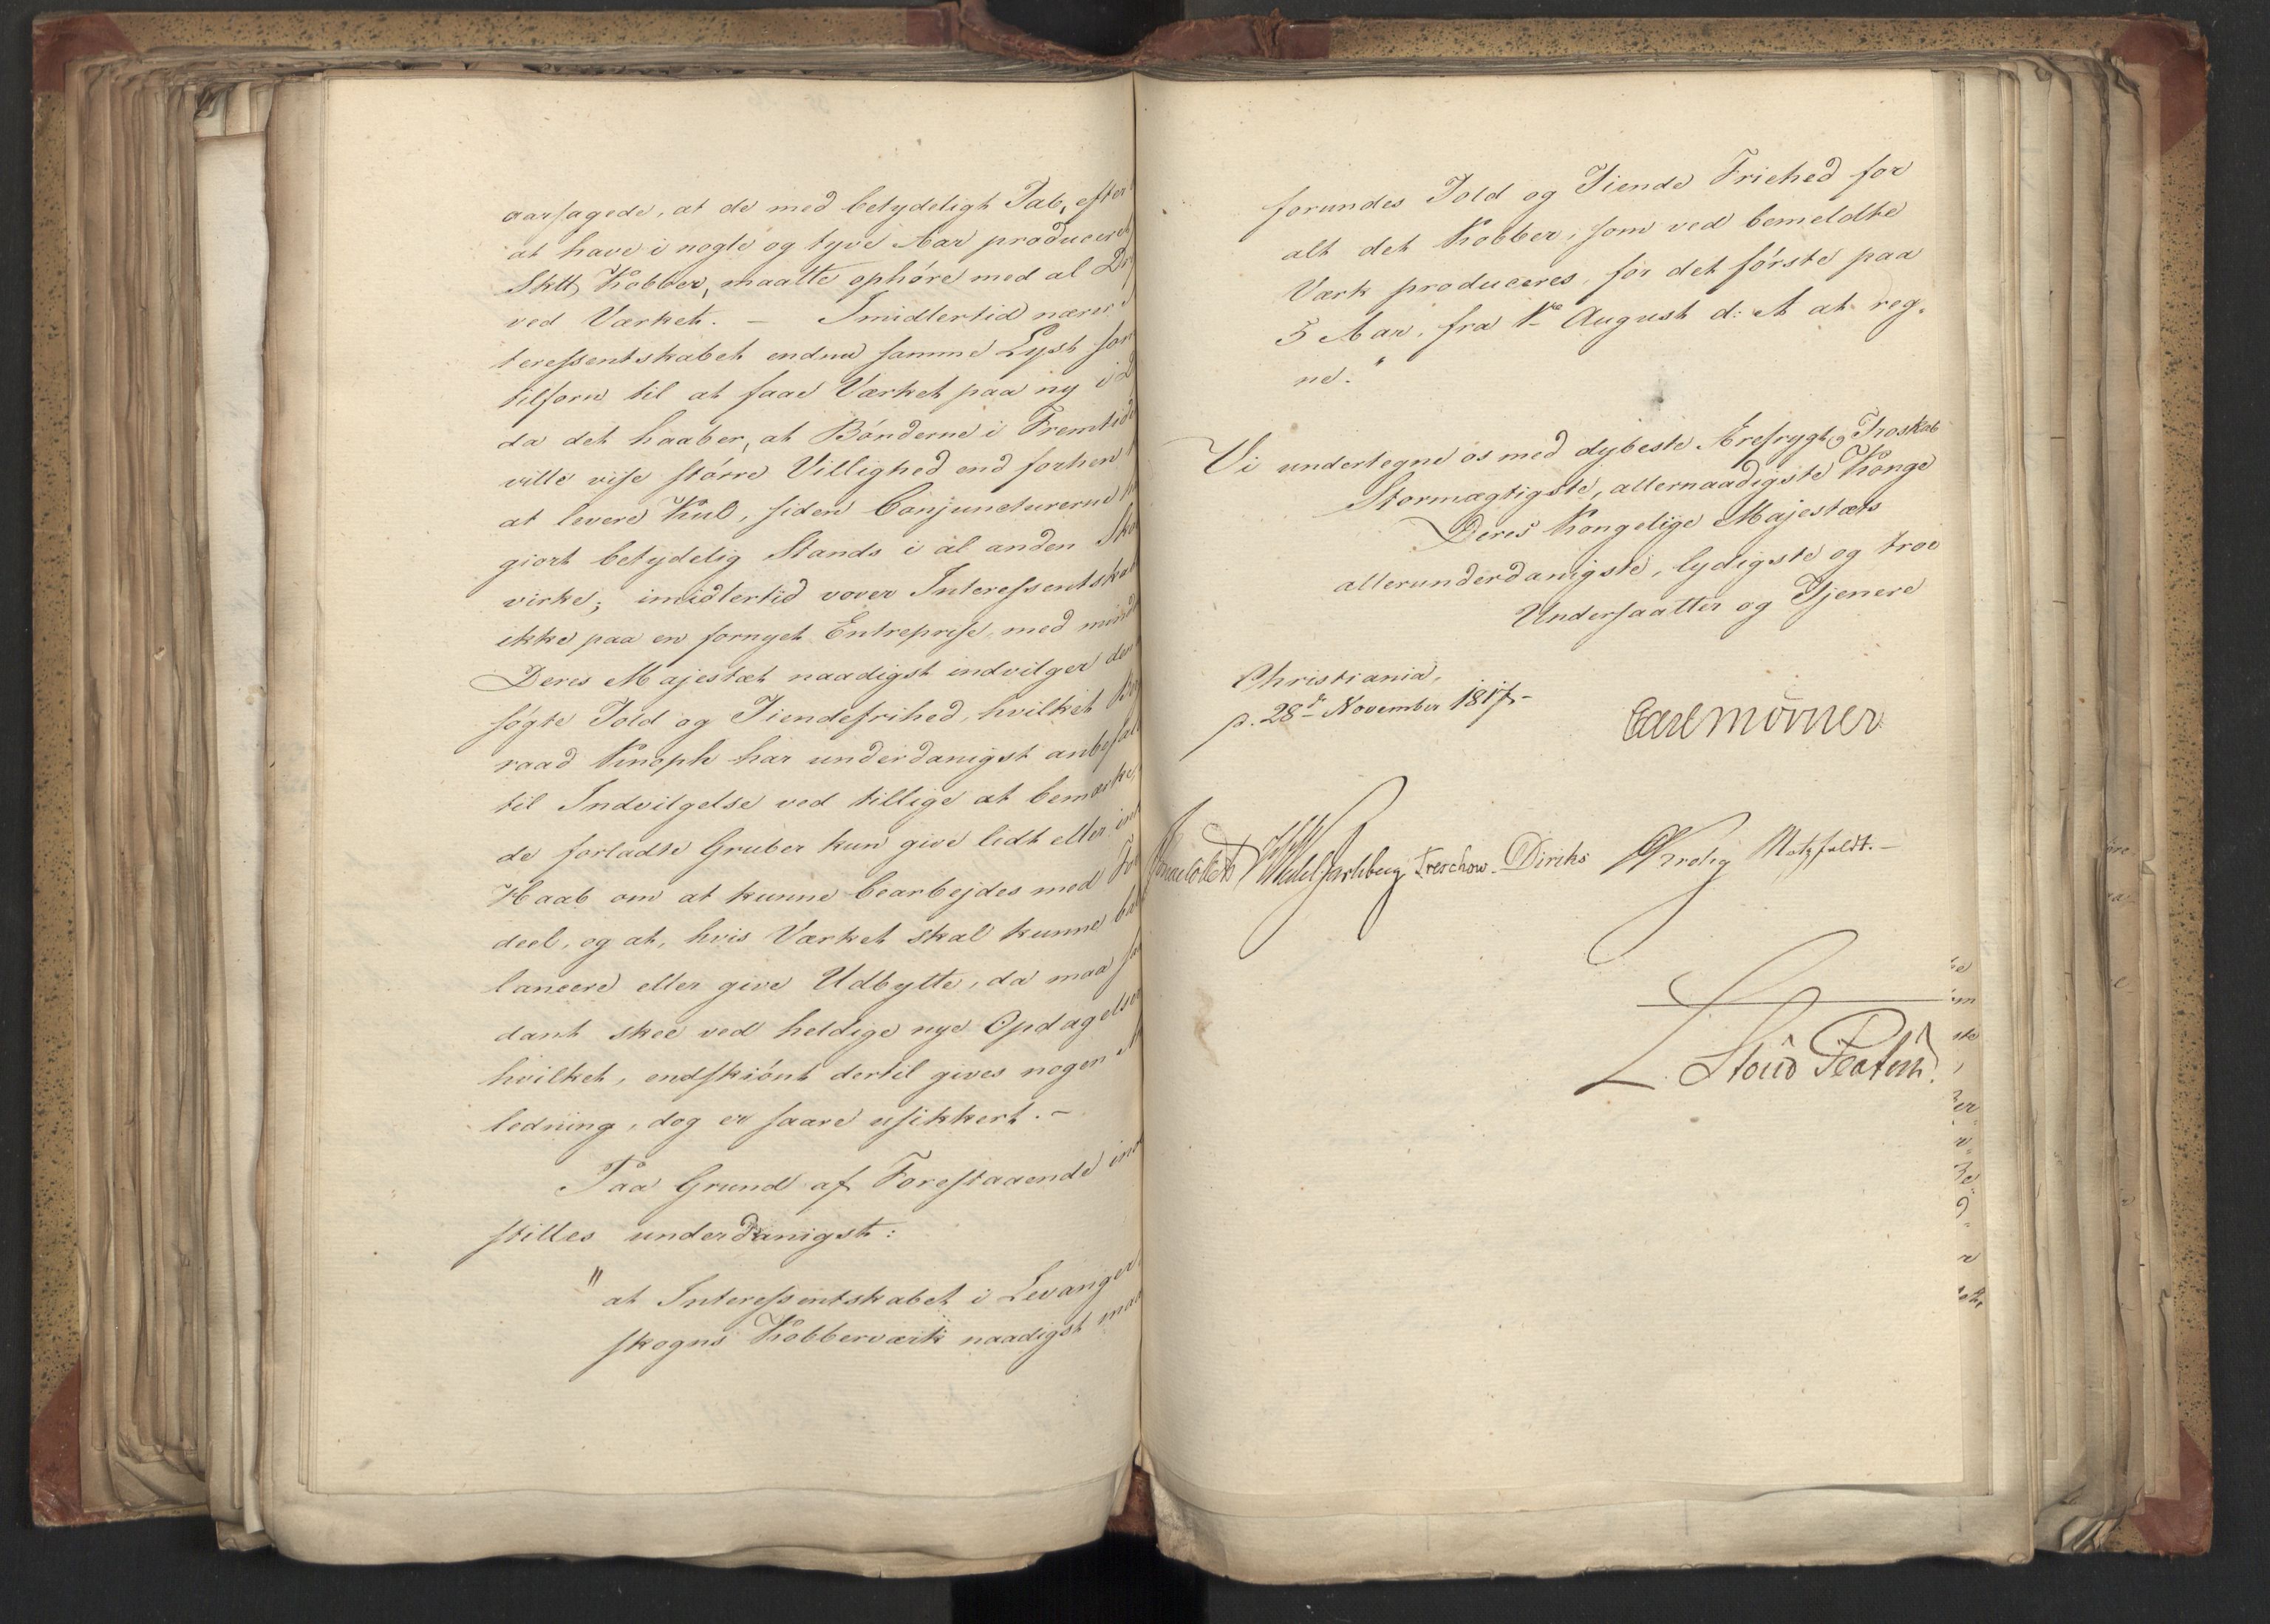 aarsagede, at de med betydeligt Tab, efter
at have i nogle og tyve Aar produceret
Sktt Kobber, maatte ophöre med al Dr
ved Værket. – Imidlertid nærer
teressentskabet endnu samme Lyst som
tilforn til at faae Værket paa ny i D
da det haaber, at Bönderne i Fremtide
ville vise större Villighed end forhen
at levere Kul, siden Conjuncturerne h
giort betydelig Stands i al anden Sko
virke; imidlertid vover Interessentskab
ikke paa en fornyet Entreprise, med mind
Deres Majestæt naadigst indvilger den
sögte Told og Tiendefrihed, hvilket Ber
raad Knoph har underdanigst anbefalt
til Indvilgelse ved tillige at bemærke,
de forladte Gruber kun give lidt eller int
Haab om at kunne bearbejdes med For
deel, og at, hvis Værket skal kunne ba
lancere eller give Udbytte, da maa saa
dant skee ved heldige nye Opdagelser
hvilket, endskiönt dertil gives nogen A
ledning, dog er saare usikkert. –
Paa Grund af Forestaaende ind
stilles underdanigst:
"at Interessentskabet i Levanger
skogns Kobberværk naadigst maa
forundes Told og Tiende Friehed for
alt det Kobber, som ved bemeldte
Værk produceres, for det förste paa
5 Aar, fra 1ste August d: A at reg-
ne."
Vi undertegne os med dybeste Ærefrygt og Troskab
Stormægtigste, allernaadigste Konge
Deres Kongelige Majestæts
allerunderdanigste, lydigste og troe
Undersaatter og Tjenere
Christiania,
p. 28de November 1817. –
Carl Mörner
Jonas Collett HWedel Jarlsberg Treschow. Diriks Krohg Motzfeldt. –
L. Stoud Platou